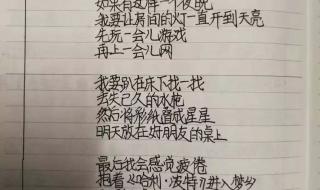 如果有这样一个夜晚
我要让房间的灯一直开到天亮
先玩一会儿游戏
再上一会儿网
我要趴在床下找一找
丢失已久的水枪
然后将彩纸叠成星星
明天放在好朋友的桌上
最后我会感觉疲倦
抱着《哈利·波特》进入梦乡